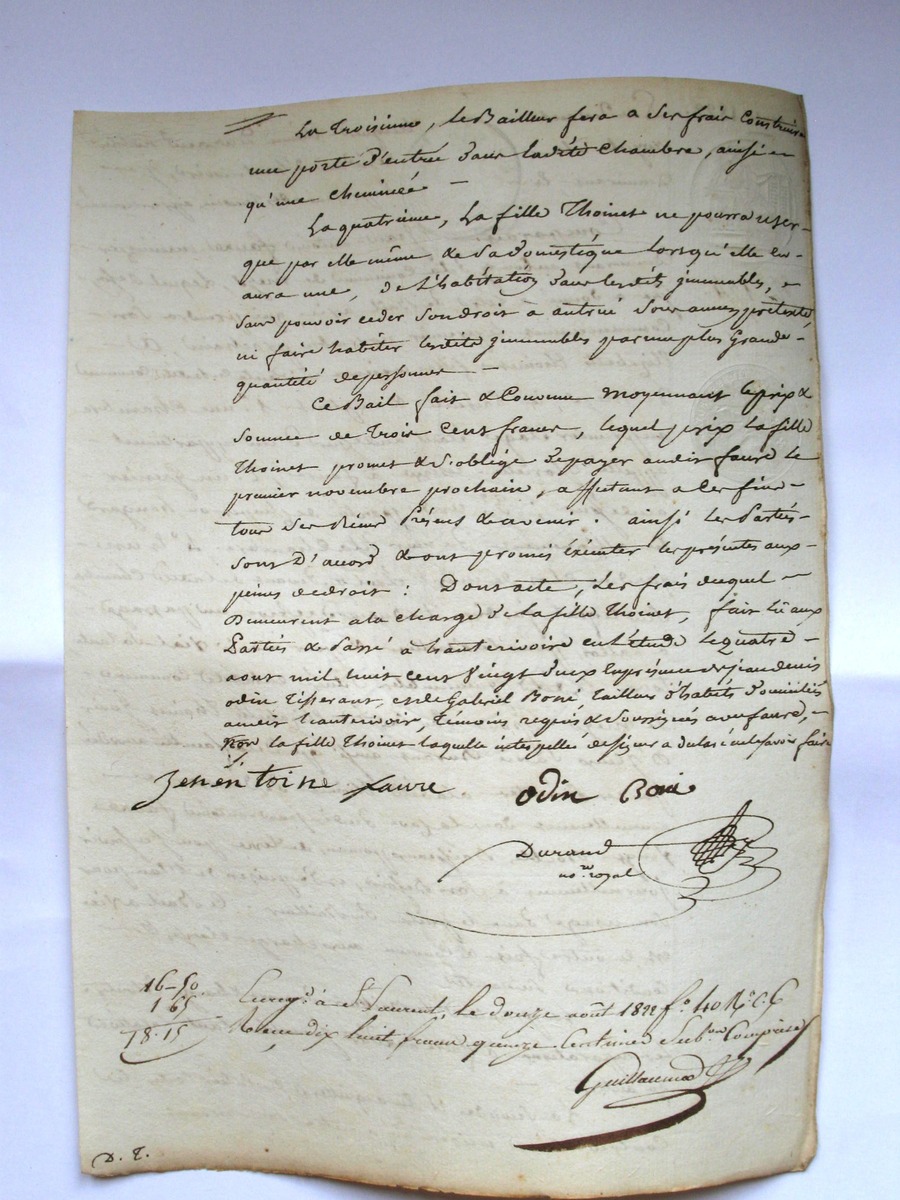 La Troisieme, le Bailleur fera a Ses frais Construire
une porte d'entrée dans ladite Chambre, ainsi
qu'une Cheminée
La quatrieme, La fille Thoinet ne pourra user
que par elle même & Sa domestique lorsqu'elle en
aura une, de L'habitation dans lesdits immeubles,
Sans pouvoir ceder Son droit à autrui Sous aucun prétexte
ni faire habiter lesdits immeubles par une plus Grande
quantité de personnes
Ce Bail fait & Convenu Moyennant le prix &
Somme de Trois Cent francs, lequel prix la fille
Thoinet promet & S'oblige de payer audit faure le
premier novembre prochain, affectant a Ces fins
tous Ses Biens Présens & avenir. ainsi les Parties
Sont D'acord & ont promis éxécuter les présentes aux
peines de droit : Dont acte, Les frais duquel
Demeurent a la charge de la fille Thoinet, fait Lû aux
Parties & Passé à hauterivoire en l'étude le quatre
aout mil huit cent Vingt deux En présence de jean denis
odin Tisserant, et de Gabriel Boné, tailleur d'habits domiciliés
audit hauterivoire, Témoins requis & Soussignés avec faure,
non la fille Thoinet laquelle interpellée de Signer a déclaré ne le Savoir faire
Jenentoine faure odin Boné
Durand
no.re royal
16-50
1 65
18.15
Enreg.é à St Laurent, le douze août 1822 f.o 40 R.o C. 6
Reçu dix huit francs quinze Centimes Sub.on Comprise
Guillaumod
D. T.